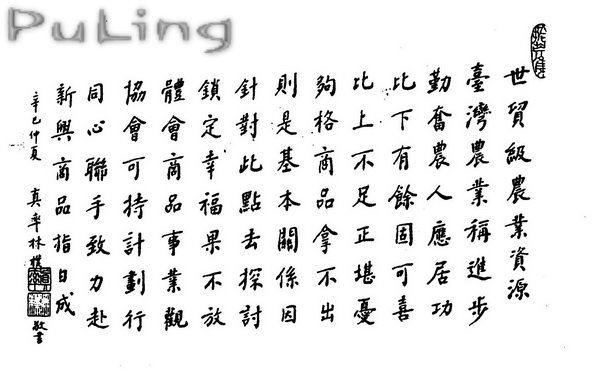 PuLing
世貿級農業資源
臺灣農業稱進步
勤奮農人應居功
比下有餘固可喜
比上不足正堪憂
夠格商品拿不出
則是基本關係因
針對此點去探討
鎖定幸福果不放
體會商品事業觀
協會可持計劃行
同心聯手致力赴
新興商品指日成
辛巳仲夏 真率林樸 敬書